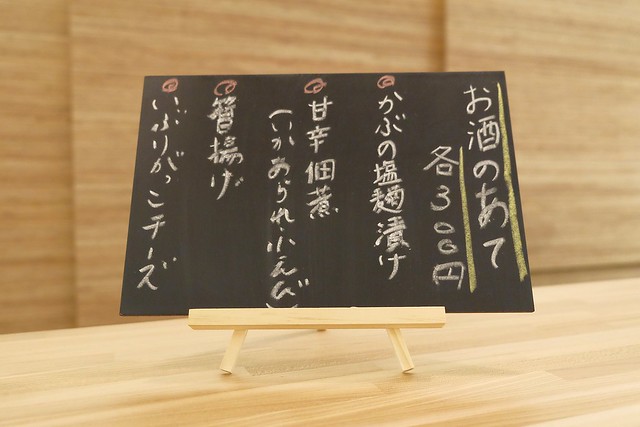 お酒のあて
各300円
かぶの塩麹漬け
甘辛佃煮
(いかあられ・小えび)
簀揚げ
いぶりがっこチーズ